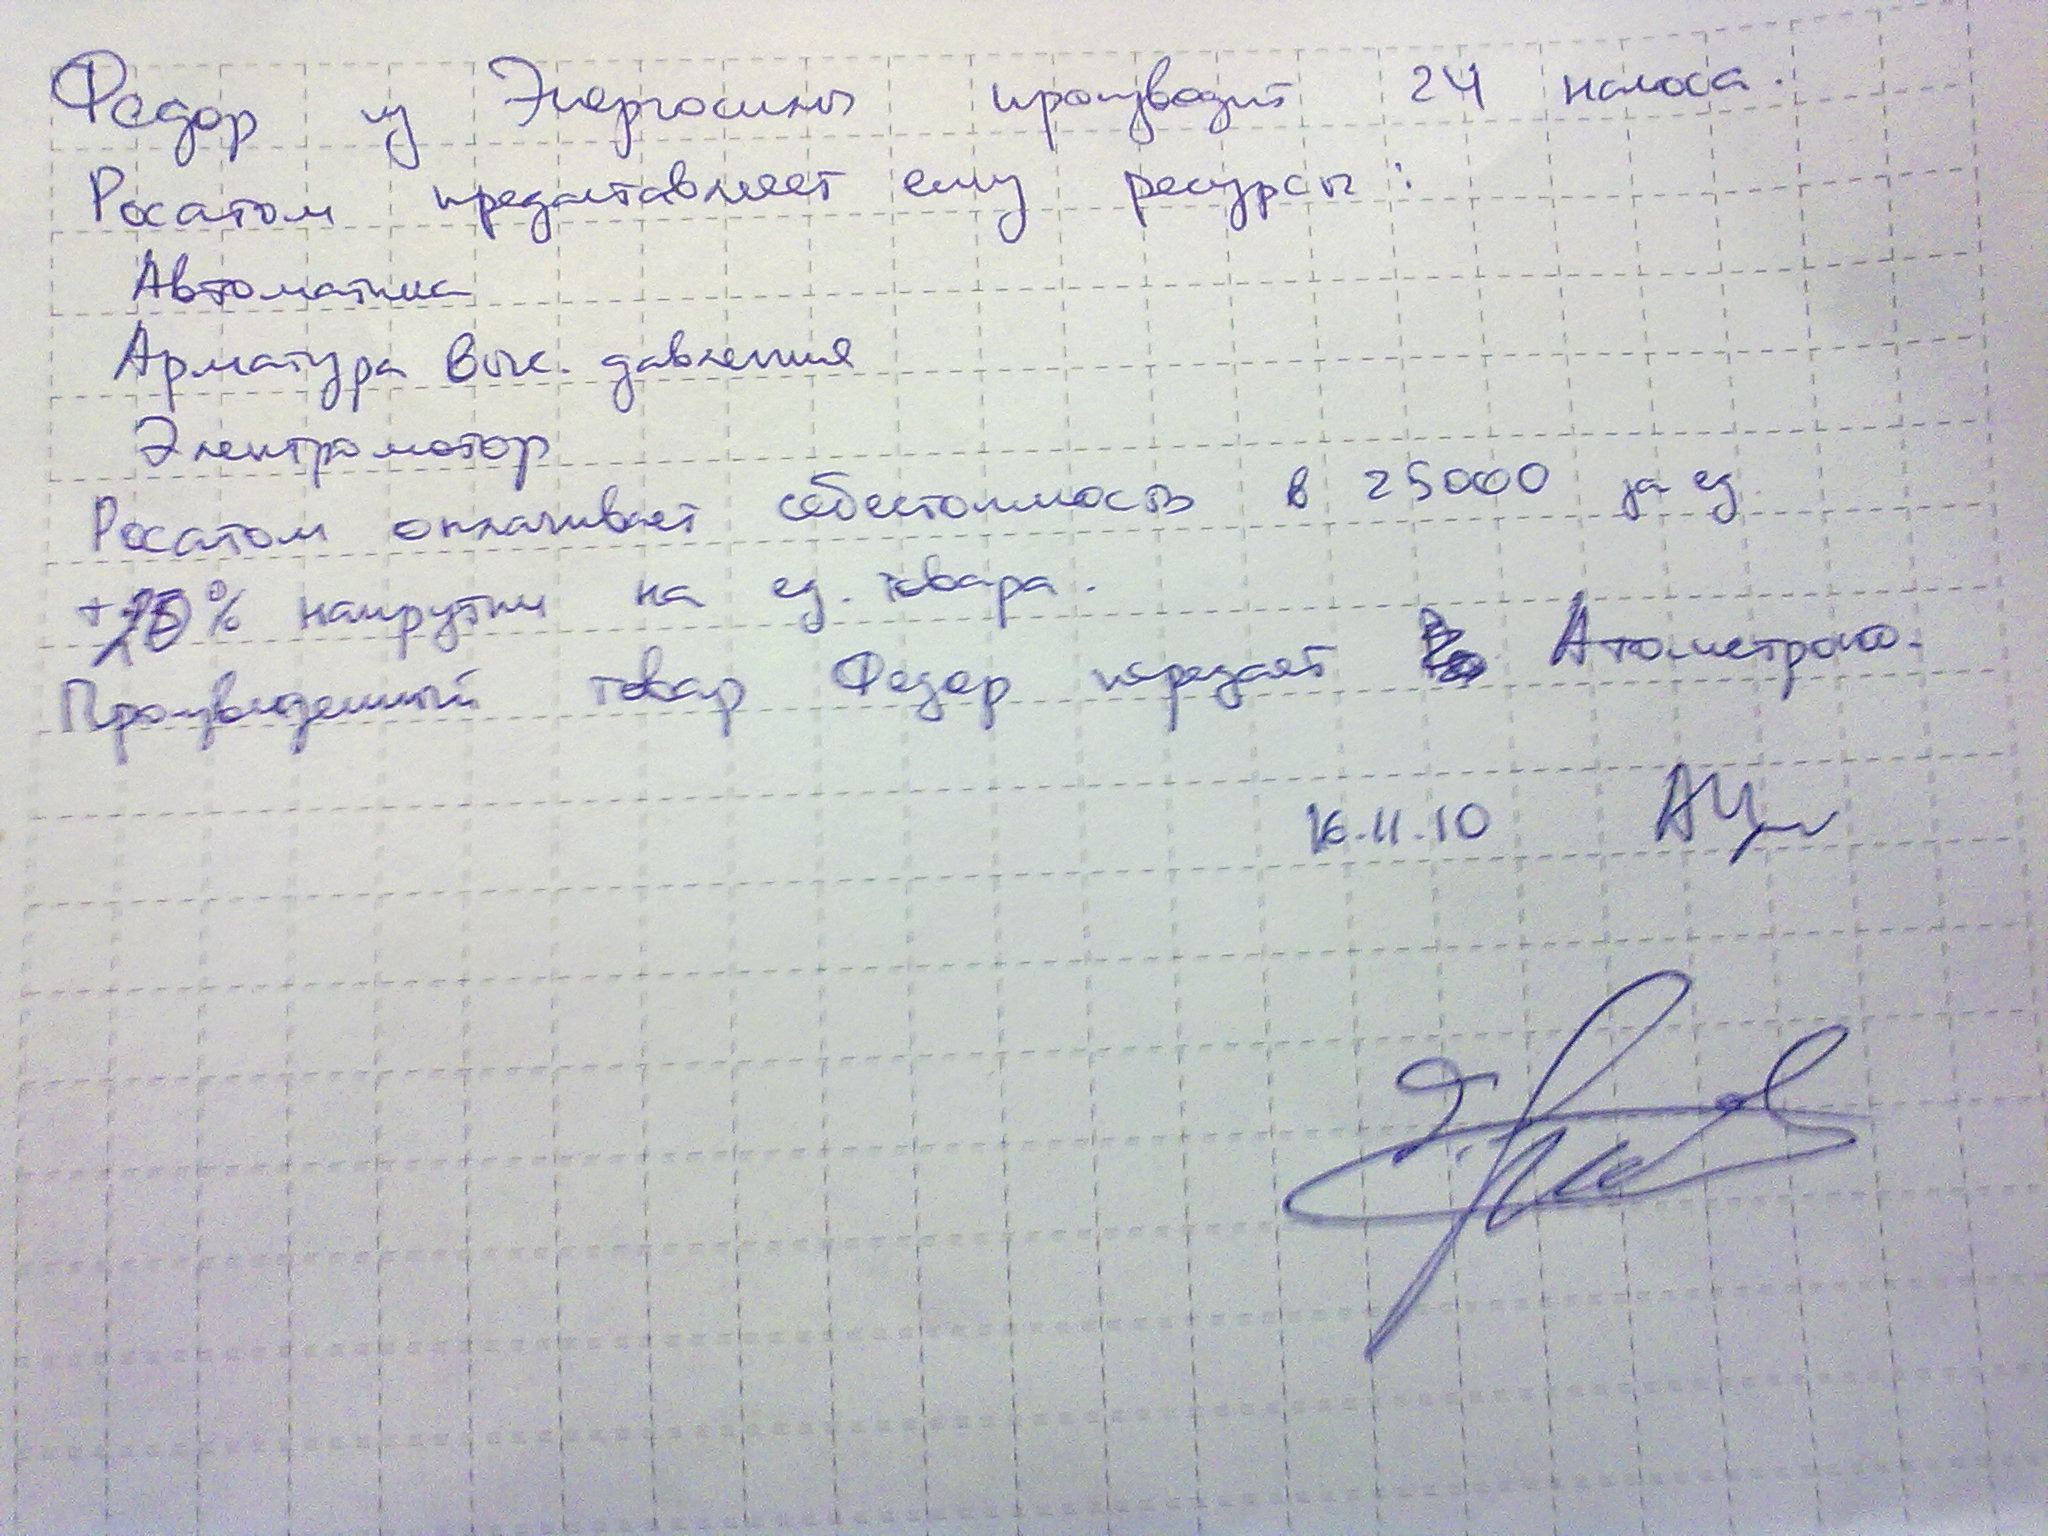 Федор из Энергосилы производит 24 насоса.
Росатом предоставляет ему ресурсы:
Автоматика
Арматура выс. давления
Электромотор
Росатом оплачивает себестоимость в 25000 за ед.
% накрутки на ед. товара.
Произведенный товар Федор передает
16.11.10